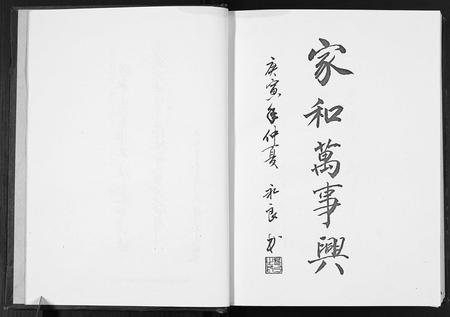 家和萬事興
庚寅年仲夏 礼良书